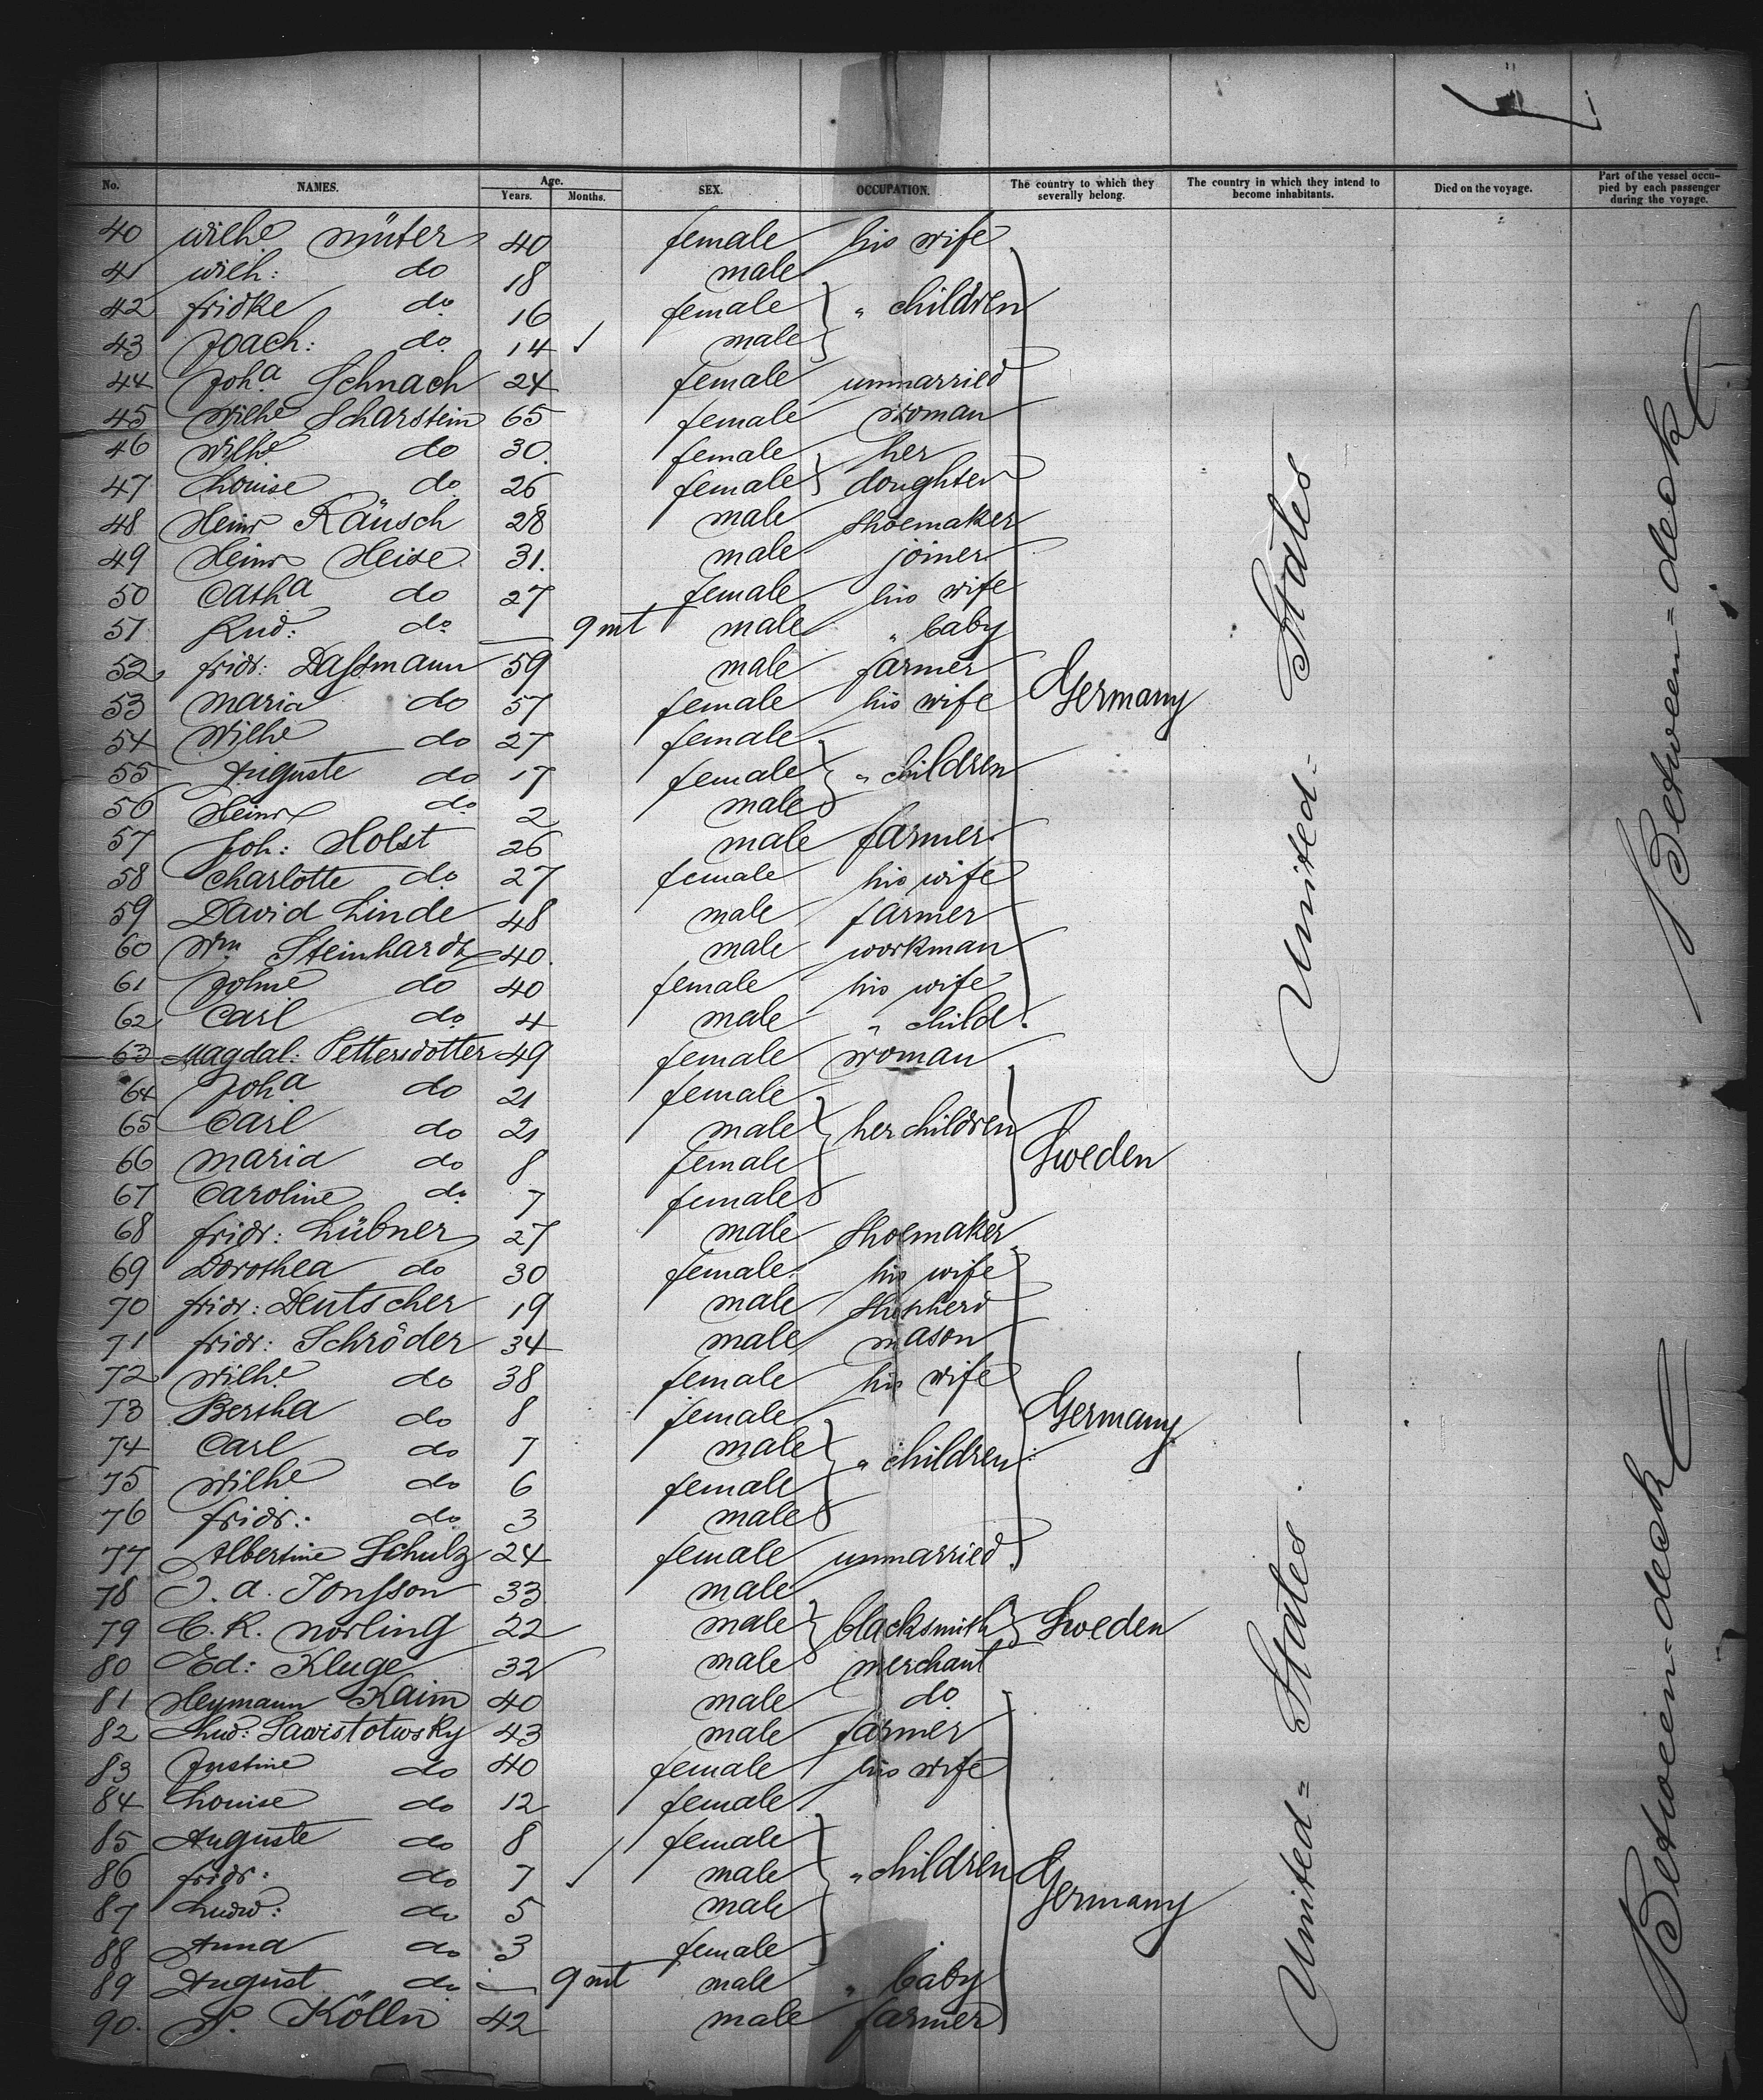 No. NAMES. Age. Years. Months. SEX. OCCUPATION. The country to which they severally belong. The country in which they intend to become inhabitants. Died on the voyage. Part of the vessel occupied by each passenger during the voyage.
40 Wilhe Müter 40 female his wife
41 Wilh: do 18 male
42 Fridke do 16 female " children
43 Joach: do 14 male
44 Joha Schnach 24 female unmarried
45 Wilhe Scharstein 65 female woman
46 Wilhe do 30. female her
47 Louise do 26 female doughter
48 Heinr Räusch 28 male shoemaker
49 Heinr Heise 31. male joiner
50 Catha do 27 female his wife
51 Rud: do — 9 mt male " baby
52 Fridr: Dassmann 59 male farmer
53 Maria do 57 female his wife Germany
54 Wilhe do 27 female
55 Auguste do 17 female " children
56 Heinr do 2 male
57 Joh: Holst 26 male farmer
58 Charlotte do 27 female his wife
59 David Linde 48 male farmer
60 Wm Steinhardt 40. male workman
61 Johne do 40 female his wife
62 Carl do 4 male " child.
63 Magdal: Pettersdotter 49 female woman
64 Joha do 21 female
65 Carl do 21 male her children
66 Maria do 8 female Sweden
67 Caroline do 7 female
68 Fridr: Lübner 27 male shoemaker
69 Dorothea do 30 female his wife
70 Fridr: Deutscher 19 male shepherd
71 Fridr: Schröder 34 male mason
72 Wilhe do 38 female his wife
73 Bertha do 8 female Germany
74 Carl do 7 male " children
75 Wilhe do 6 female
76 Fridr: do 3 male
77 Albertine Schulz 24 female unmarried
78 J. A. Jonsson 33 male
79 C. R. Norling 22 male blacksmith Sweden
80 Ed: Kluge 32 male merchant
81 Heymann Kaim 40 male do
82 Ludw: Sawistotwsky 43 male farmer
83 Justine do 40 female his wife
84 Louise do 12 female
85 Auguste do 8 female
86 Fridr: do 7 male " children Germany
87 Ludw: do 5 male
88 Anna do 3 female
89 August do — 9 mt male " baby
90. Kölln 42 male farmer
United = States
United = States. —
Between = deck
Between = deck